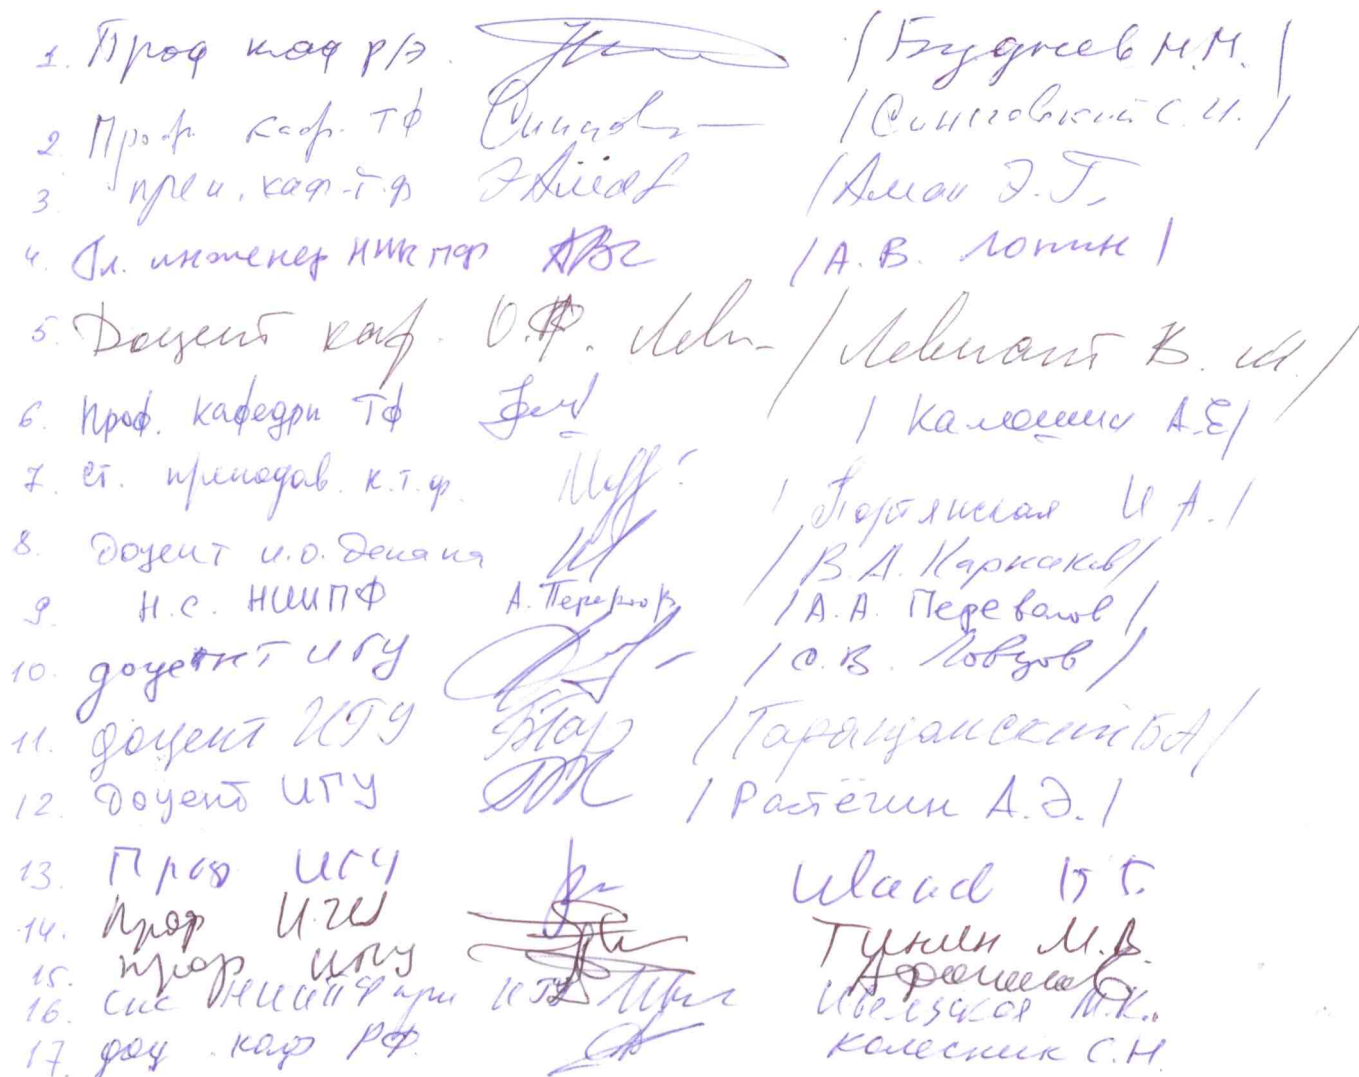 1. Проф каф р/э. /Буднев Н.М./
2. Проф. каф. ТФ Синегов /Синеговский С.И./
3. преп. каф. т.ф ЭАман /Аман Э.Г.
4. Гл. инженер НИИПФ /А.В. Лопин/
5. Доцент каф. О.Ф. Леви /Левиант В.М./
6. Проф. кафедры ТФ /Калошин А.Е/
7. ст. преподав. к.т.ф. /Портянская И А./
8. доцент и.о. декана /В.А. Карнаков/
9. Н.С. НИИПФ А. Перевалов /А.А. Перевалов/
10. доцент ИГУ /С.В. Ловцов/
11. доцент ИГУ БТар /Таращанский БА/
12. доцент ИГУ /Растёгин А.Э./
13. Проф ИГУ
14. Проф ИГУ Тинин М.В.
15. проф ИГУ Афанасьев
16. снс НИИПФ при ИГУ М.К.
17. доц. каф РФ. Колесник С.Н.